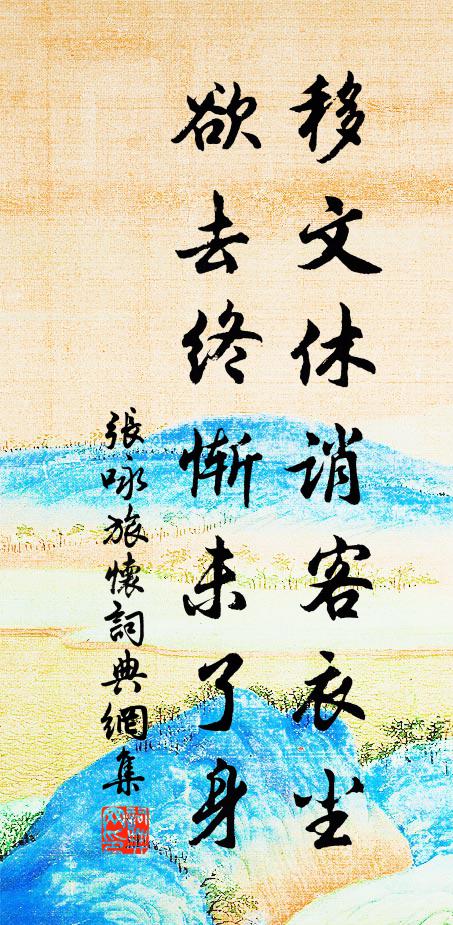 移文休誚客衣尘
欲去终惭未了身
張咏旅懷詞典網集